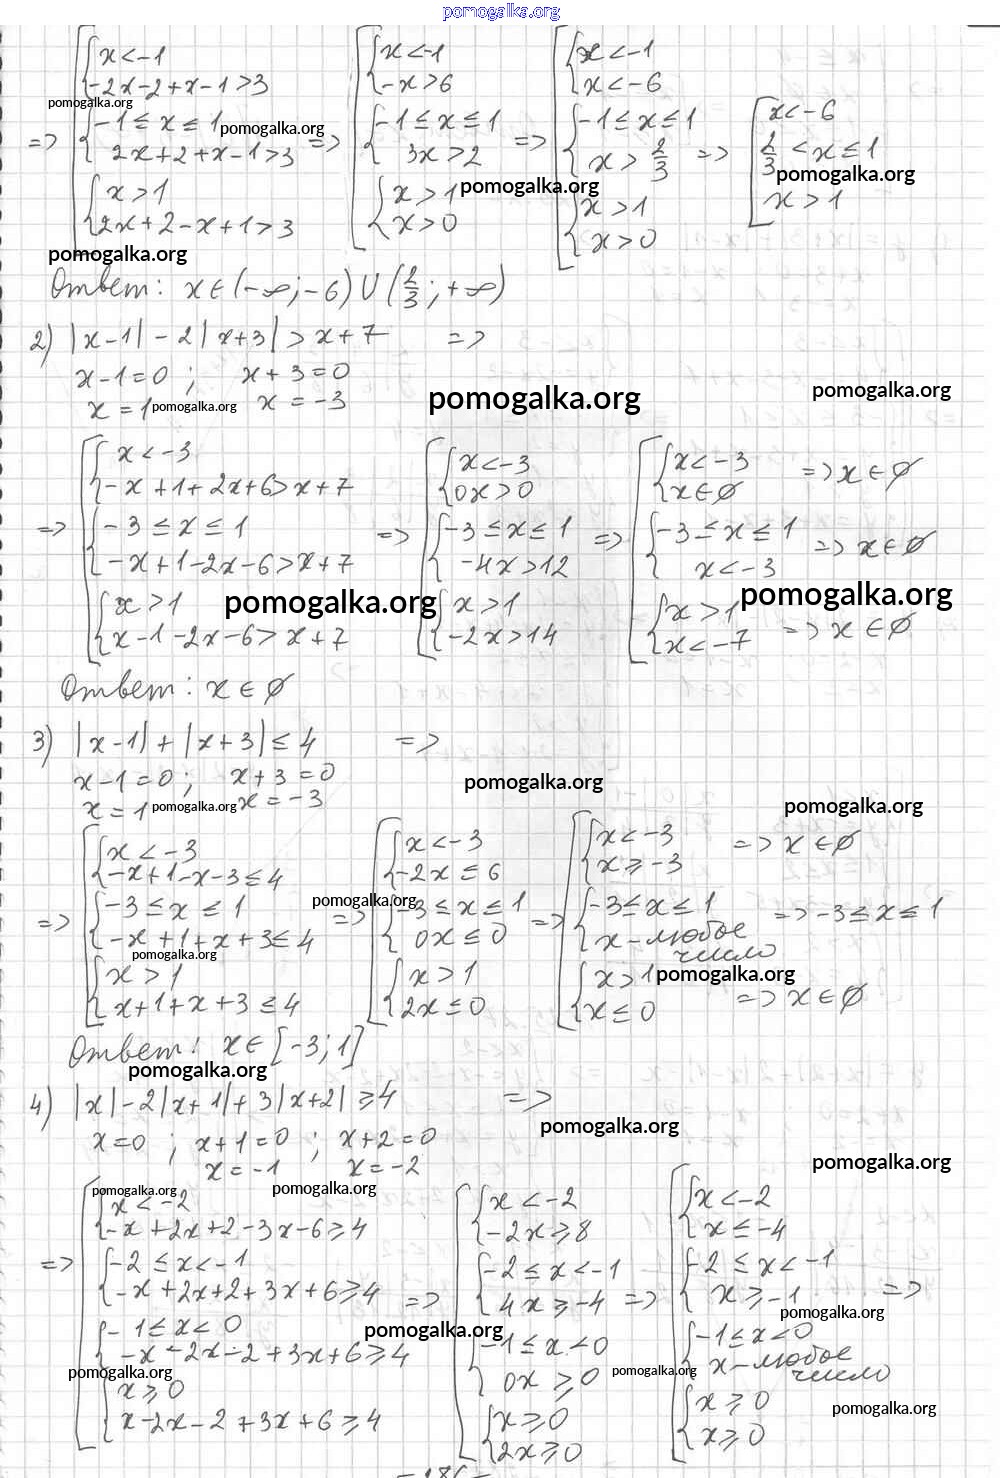 pomogalka.org
=> [ { x < -1 ; -2x-2+x-1>3 { -1 ≤ x ≤ 1 ; 2x+2+x-1>3 { x>1 ; 2x+2-x+1>3
=> [ { x<-1 ; -x>6 { -1 ≤ x ≤ 1 ; 3x>2 { x>1 ; x>0
=> [ { x<-1 ; x<-6 { -1≤x≤1 ; x > 2/3 { x>1 ; x>0
=> [ x<-6 ; 2/3 < x ≤ 1 ; x>1
pomogalka.org
pomogalka.org
pomogalka.org
pomogalka.org
pomogalka.org
Ответ: x∈(-∞;-6)∪(2/3;+∞)
2) |x-1|-2|x+3|>x+7 =>
x-1=0 ; x+3=0
x=1 pomogalka.org x=-3
pomogalka.org
pomogalka.org
=> [ { x<-3 ; -x+1+2x+6>x+7 { -3≤x≤1 ; -x+1-2x-6>x+7 { x>1 ; x-1-2x-6>x+7
=> [ { x<-3 ; 0x>0 { -3≤x≤1 ; -4x>12 { x>1 ; -2x>14
=> [ { x<-3 ; x∈∅ => x∈∅ { -3≤x≤1 ; x<-3 => x∈∅ { x>1 ; x<-7 => x∈∅
pomogalka.org
pomogalka.org
Ответ: x∈∅
3) |x-1|+|x+3|≤4 =>
x-1=0; x+3=0
x=1 pomogalka.org x=-3
pomogalka.org
pomogalka.org
=> [ { x<-3 ; -x+1-x-3≤4 { -3≤x≤1 ; -x+1+x+3≤4 { x>1 ; x+1+x+3≤4
=> [ { x<-3 ; -2x≤6 { -3≤x≤1 ; 0x≤0 { x>1 ; 2x≤0
=> [ { x<-3 ; x≥-3 => x∈∅ { -3≤x≤1 ; x-любое число => -3≤x≤1 { x>1 ; x≤0 => x∈∅
pomogalka.org
pomogalka.org
pomogalka.org
Ответ: x∈[-3;1]
pomogalka.org
4) |x|-2|x+1|+3|x+2|≥4 =>
x=0 ; x+1=0 ; x+2=0
x=-1 x=-2
pomogalka.org
pomogalka.org
pomogalka.org
pomogalka.org
=> [ { x<-2 ; -x+2x+2-3x-6≥4 { -2≤x<-1 ; -x+2x+2+3x+6≥4 { -1≤x<0 ; -x-2x-2+3x+6≥4 { x≥0 ; x-2x-2+3x+6≥4
=> [ { x<-2 ; -2x≥8 { -2≤x<-1 ; 4x≥-4 { -1≤x<0 ; 0x≥0 { x≥0 ; 2x≥0
=> [ { x<-2 ; x≤-4 { -2≤x<-1 ; x≥-1 { -1≤x<0 ; x-любое число { x≥0 ; x≥0 =>
pomogalka.org
pomogalka.org
pomogalka.org
pomogalka.org
pomogalka.org